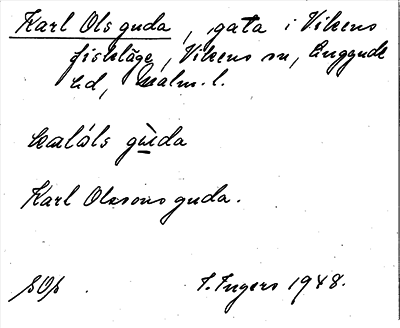 Karl Ols guda, gata i Vikens
fiskläge, Vikens sn, Luggude
hd, Malm. l.
kaláls gùda
Karl Olssons guda.
S. Ingers 1948.